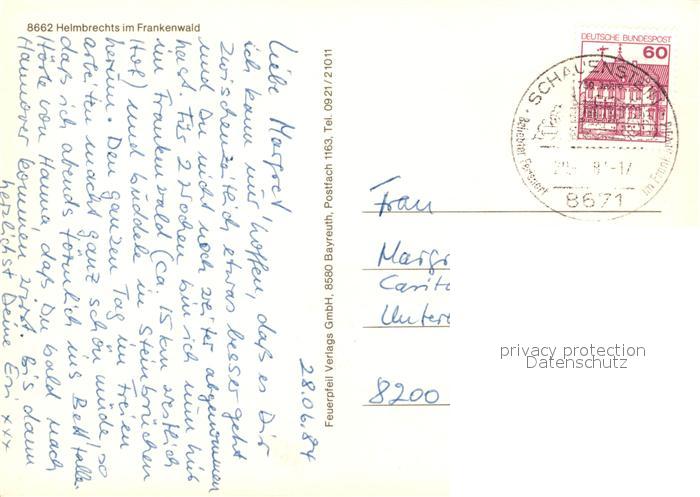 8662 Helmbrechts im Frankenwald
28.06.84
Liebe Margret,
ich kann nur hoffen, daß es Dir
zwischenzeitlich etwas besser geht
und Du nicht noch weiter abgenommen
hast. Für 2 Wochen bin ich nun hier
im Frankenwald (ca. 15 km westlich
Hof) und buddele in Steinbrüchen
herum. Den ganzen Tag im Freien
arbeiten macht ganz schön müde, so
daß ich abends förmlich ins Bett falle.
Hörte von Hanna, daß Du bald nach
Hannover kommen wirst. Bis dann
herzlichst Deine Eri xxx
Feuerpfeil Verlags GmbH, 8580 Bayreuth, Postfach 1163, Tel. 0921/21011
DEUTSCHE BUNDESPOST
60
SCHAUENST
Beliebter Ferienort
8671
Frau
Margr
Carita
Unter
8200
privacy protection
Datenschutz